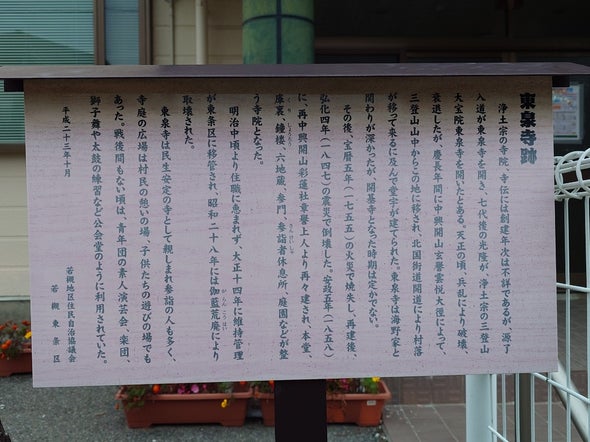 東泉寺跡
浄土宗の寺院、寺伝には創建年次は不詳であるが、源了
入道が東泉寺を開き、七代後の光隆が、浄土宗の三登山
大宝院東泉寺を開いたとある。天正の頃、兵乱により破壊、
衰退したが、慶長年間に中興開山玄誉雲悦大徑によって、
三登山山中からこの地に移され、北国街道開道により村落
が移って来るに及んで堂宇が建てられた。東泉寺は海野家と
関わりが深かったが、開基寺となった時期は定かでない。
その後、宝暦五年(一七五五)の火災で焼失し、再建後、
弘化四年(一八四七)震災で倒壊した。安政五年(一八五八)
に、再中興開山彰蓮社章誉上人より再々建され、本堂、
庫裏、鐘楼、六地蔵、参門、参詣者休息所、庭園などが整
う寺院となった。
明治中頃より住職に恵まれず、大正十四年に維持管理
が東条区に移管され、昭和二十八年には伽藍荒廃により
取壊された。
東泉寺は民生安定の寺として親しまれ参詣の人も多く、
寺庭の広場は村民の憩いの場、子供たちの遊びの場でも
あった。戦後間もない頃は、青年団の素人演芸会、楽団、
獅子舞や太鼓の練習など公会堂のように利用されていた。
平成二十三年十月
若槻地区住民自治協議会
若槻東条区